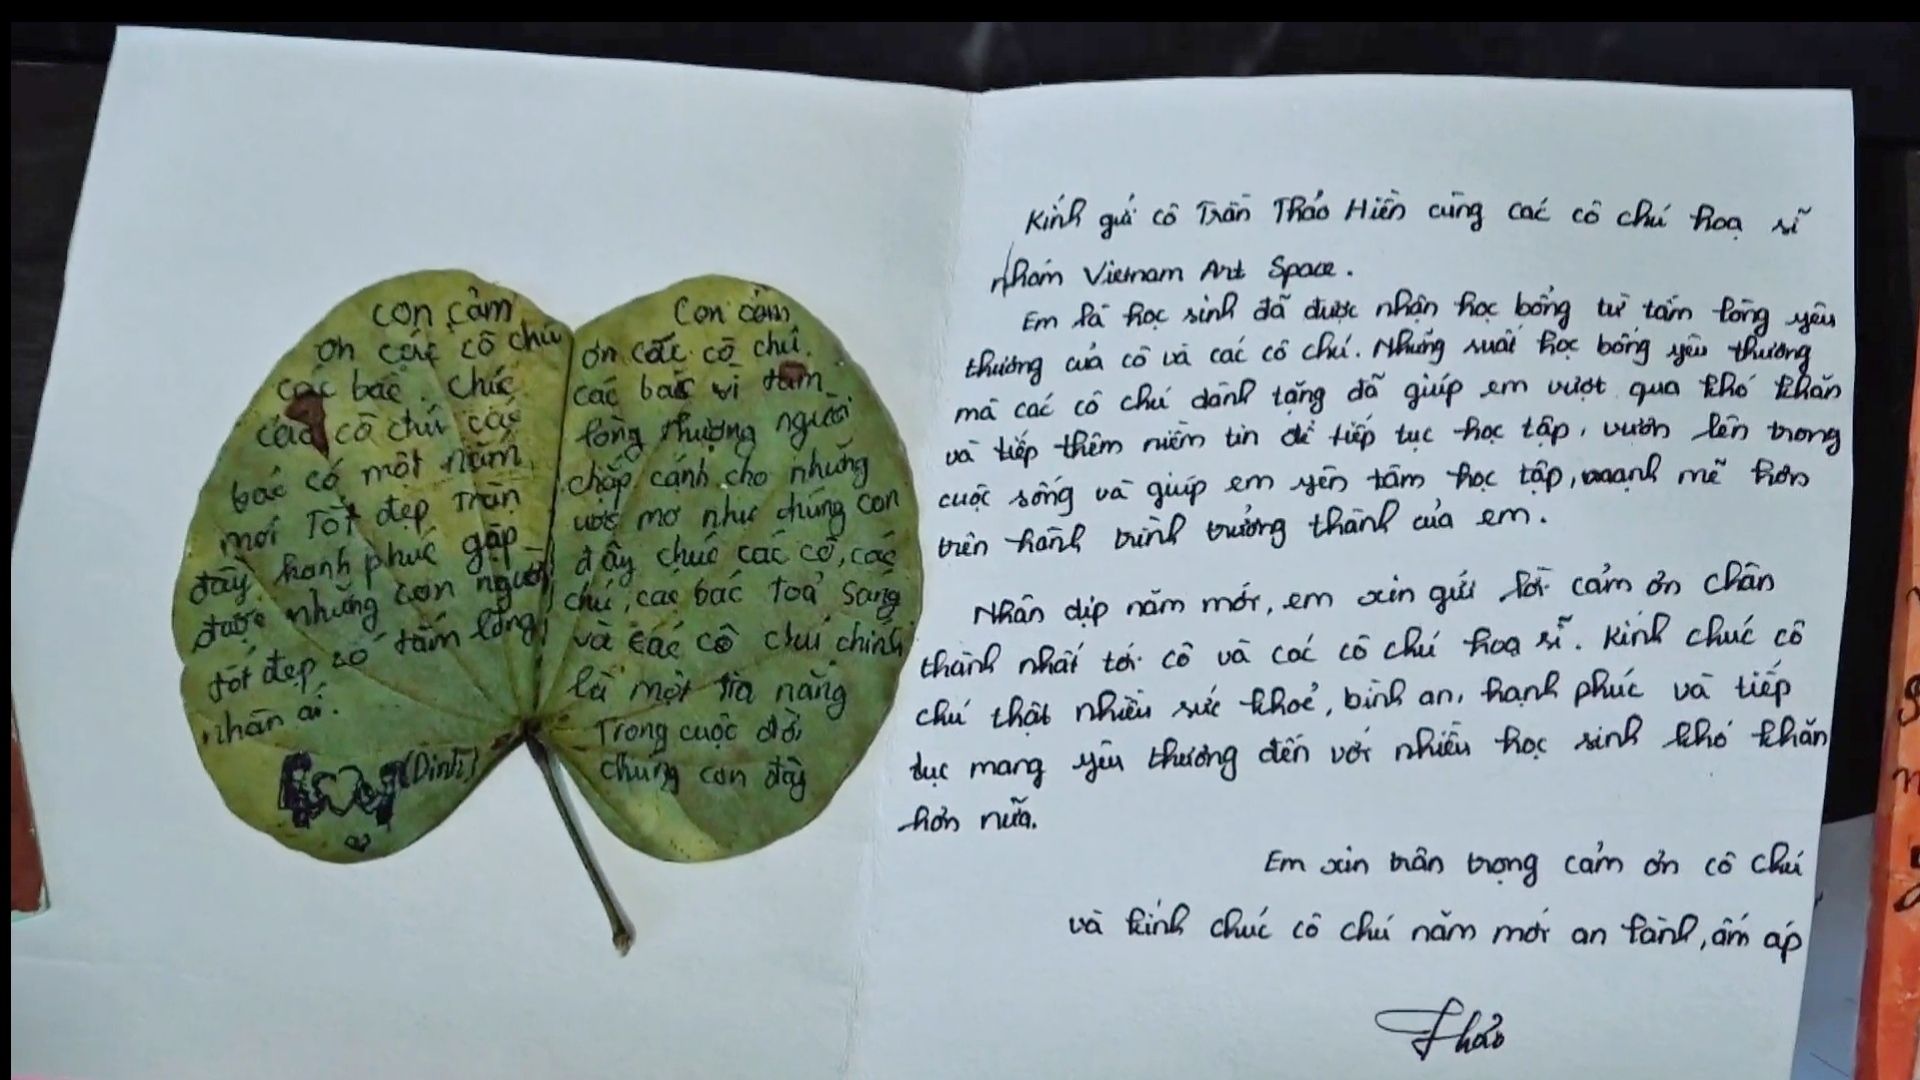 con cảm
ơn các cô chú
các bác. Chúc
các cô chú các
bác có một năm
mới Tốt đẹp Tràn
đầy hạnh phúc gặp
được những con người
tốt đẹp có tấm lòng
nhân ái.
(Dinh)
Con cảm
ơn các cô chú.
các bác vì tấm
lòng thượng người
chắp cánh cho những
ước mơ như chúng con
đây chúc các cô, các
chú, các bác Toả sáng
và các cô chú chính
là một tia nắng
Trong cuộc đời
chúng con đây
Kính gửi cô Trần Thảo Hiền cùng các cô chú hoạ sĩ
nhóm Vietnam Art Space.
Em là học sinh đã được nhận học bổng từ tấm lòng yêu
thương của cô và các cô chú. Những suất học bổng yêu thương
mà các cô chú dành tặng đã giúp em vượt qua khó khăn
và tiếp thêm niềm tin để tiếp tục học tập, vươn lên trong
cuộc sống và giúp em yên tâm học tập, mạnh mẽ hơn
trên hành trình trưởng thành của em.
Nhân dịp năm mới, em xin gửi lời cảm ơn chân
thành nhất tới cô và các cô chú hoạ sĩ. Kính chúc cô
chú thật nhiều sức khoẻ, bình an, hạnh phúc và tiếp
tục mang yêu thương đến với nhiều học sinh khó khăn
hơn nữa.
Em xin trân trọng cảm ơn cô chú
và kính chúc cô chú năm mới an lành, ấm áp
Thảo